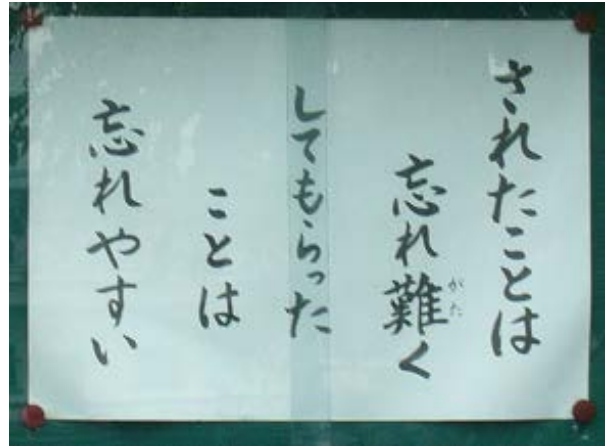 されたことは
忘れ難く
がた
してもらった
ことは
忘れやすい